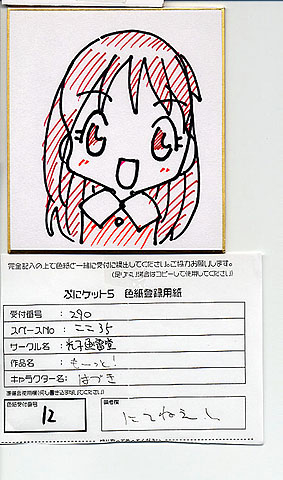 完全記入の上で色紙と一緒に受付に提出してください。ご協力お願いします。
(足りない場合はコピーして使用してください)
ぷにケット5 色紙登録用紙
受付番号 : 290
スペースNo : ここ35
サークル名 :
作品名 : もーっと!
キャラクター名 : はづき
準備会使用欄(何も書き込まないでください)
色紙受付番号
12
執筆者
にてねえし